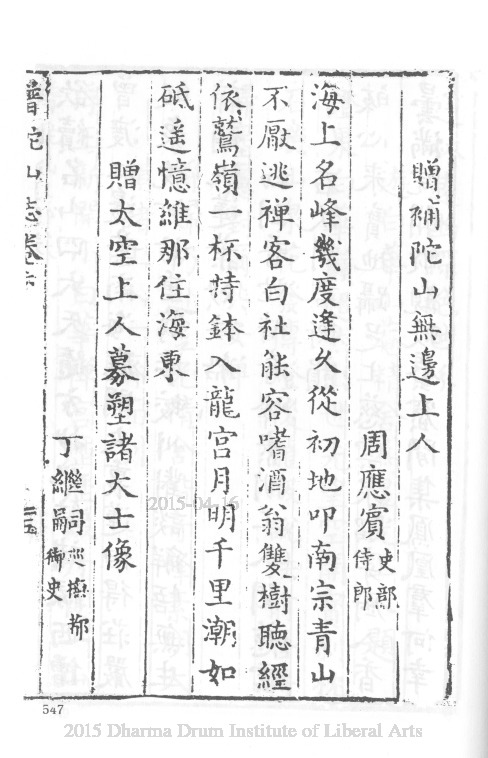 贈補陀山無邊上人
周應賓吏部侍郎
海上名峰幾度逢久從初地叩南宗青山
不厭逃禅客白社能容嗜酒翁雙樹聽經
依鷲嶺一杯持鉢入龍宮月明千里潮如
砥遥憶維那住海東
贈太空上人募塑諸大士像
丁繼嗣巡撫都御史
普陀山志卷六
2015-04-16
547
2015 Dharma Drum Institute of Liberal Arts